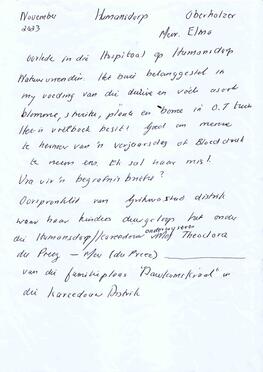 November Humansdorp Oberholzer
2023 Mev. Elma
oorlede in die Hospitaal op Humansdorp
Natuurvriendin. Het baie belanggestel in
my voeding van die duiwe en voëls asook
blomme, struike, plante en bome in O.T
Het 'n besit! Goed om mense
te herinner van 'n verjaarsdag of Bloeddruk
te neem ens. Ek sal haar mis!
Vra vir 'n begrafnis briefie?
Oorspronklik van distrik
waar haar kinders het onder
die Humansdorp/Kareedouw onderwyseres Mej Theodora
du Preez - Mev (du Preez)
van die familieplaas " " in
die Kareedouw Distrik